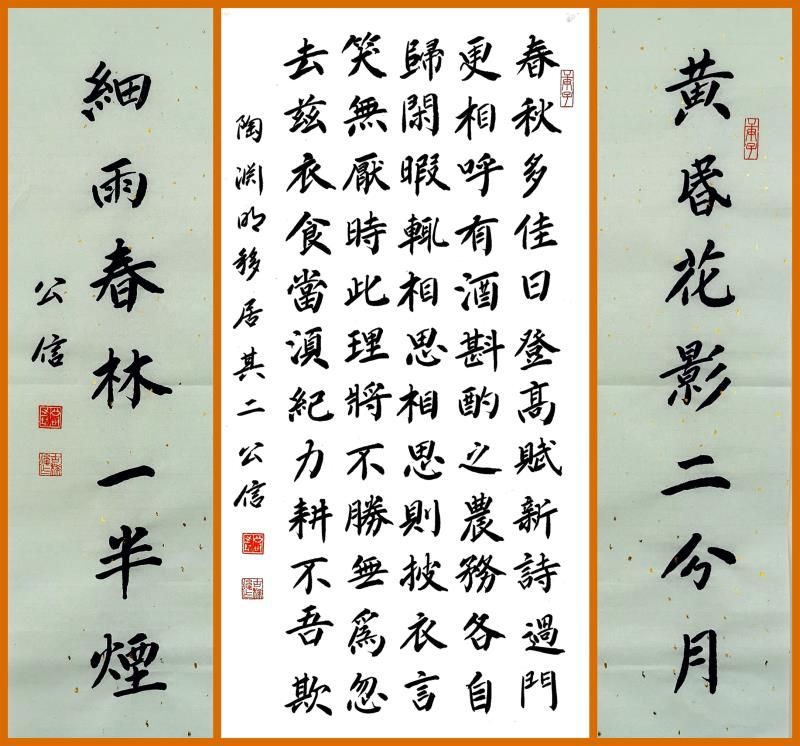 黃昏花影二分月
庚子
春秋多佳日登高賦新詩過門
庚子
更相呼有酒斟酌之農務各自
歸閑暇輒相思相思則披衣言
笑無厭時此理將不勝無爲忽
去茲衣食當須紀力耕不吾欺
陶淵明移居其二公信
細雨春林一半煙
公信